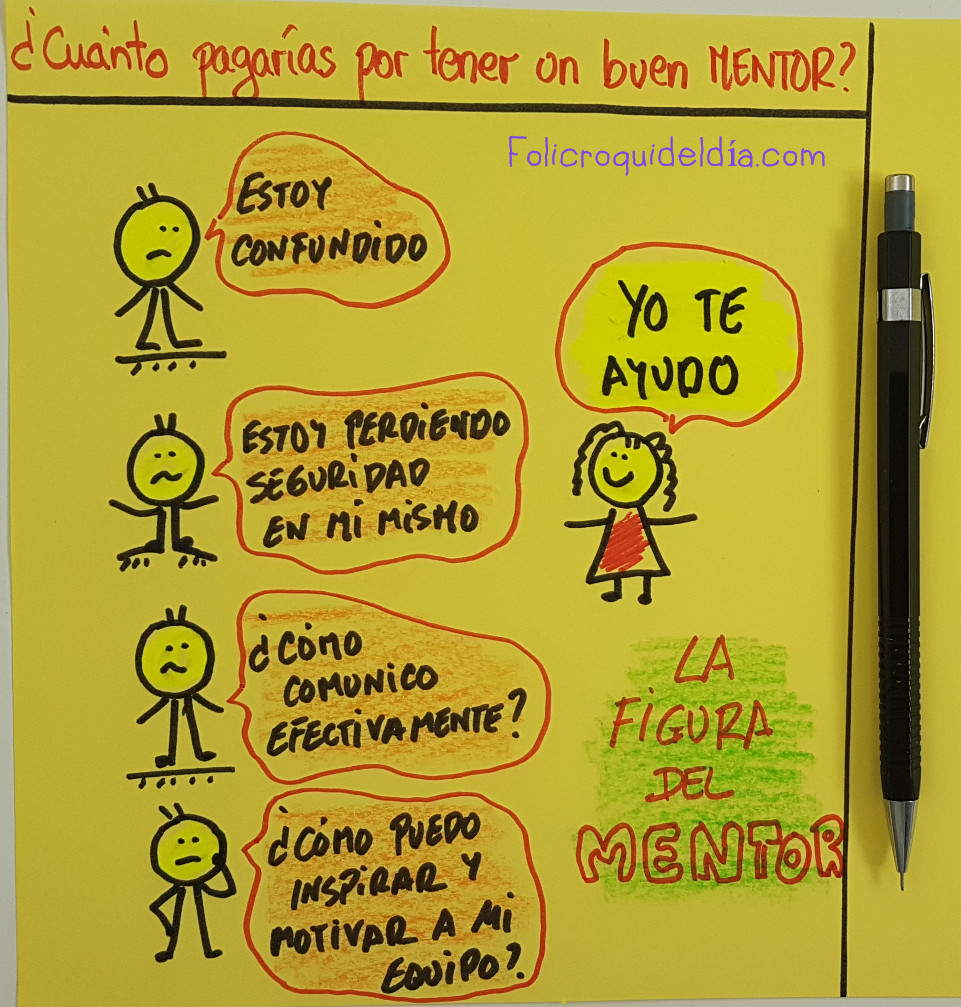 ¿Cuánto pagarías por tener un buen MENTOR?
Folicroquideldía.com
ESTOY
CONFUNDIDO
YO TE
AYUDO
ESTOY PERDIENDO
SEGURIDAD
EN MI MISMO
¿CÓMO
COMUNICO
EFECTIVAMENTE?
LA
FIGURA
DEL
MENTOR
¿CÓMO PUEDO
INSPIRAR Y
MOTIVAR A MI
EQUIPO?